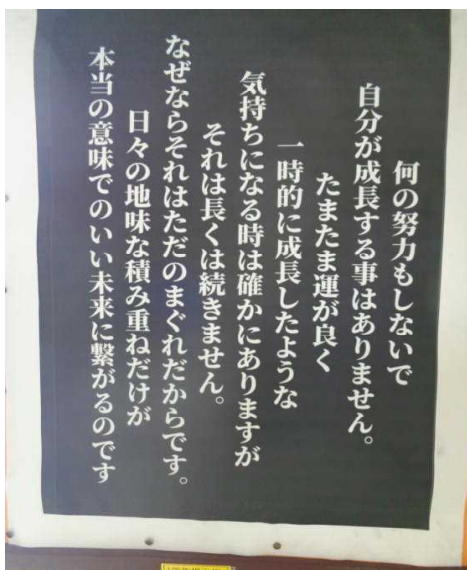 何の努力もしないで
自分が成長する事はありません。
たまたま運が良く
一時的に成長したような
気持ちになる時は確かにありますが
それは長くは続きません。
なぜならそれはただのまぐれだからです。
日々の地味な積み重ねだけが
本当の意味でのいい未来に繋がるのです